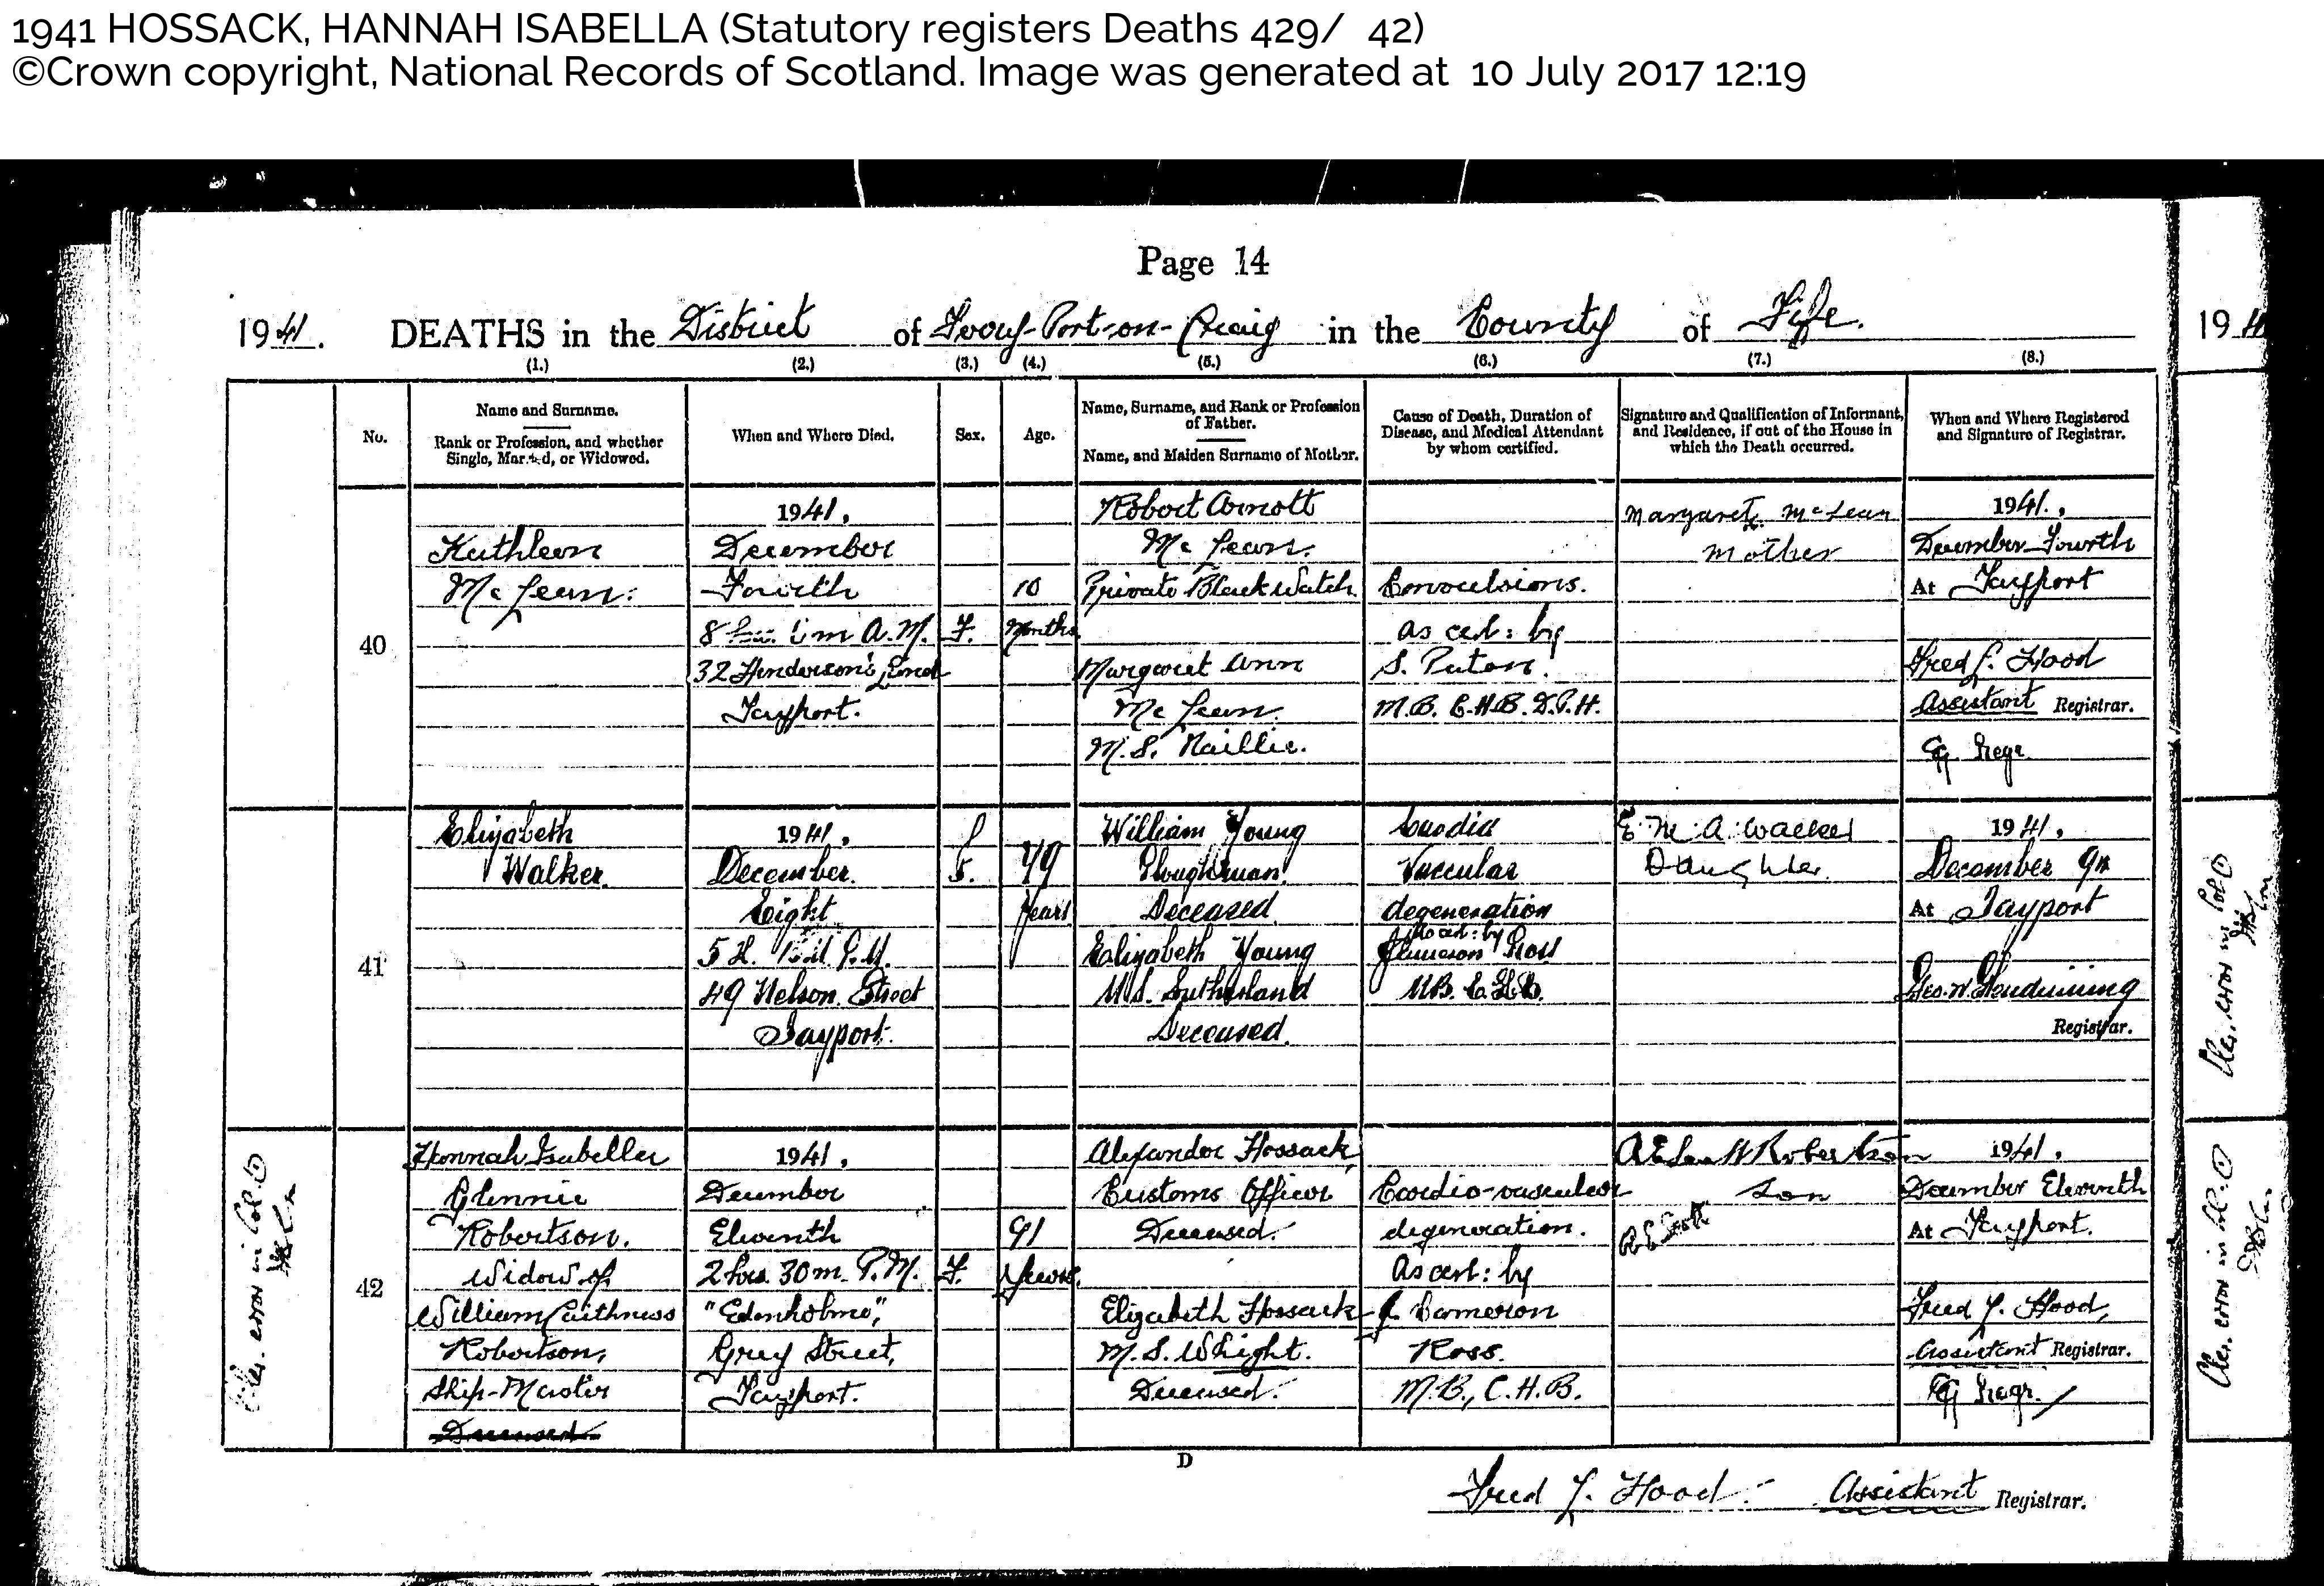 1941 HOSSACK, HANNAH ISABELLA (Statutory registers Deaths 429/ 42)
©Crown copyright, National Records of Scotland. Image was generated at 10 July 2017 12:19
Page 14
1941. DEATHS in the District of Ferry-Port-on-Craig in the County of Fife.
19
(1.) (2.) (3.) (4.) (5.) (6.) (7.) (8.)
No.
Name and Surname.
Rank or Profession, and whether
Single, Married, or Widowed.
When and Where Died.
Sex.
Age.
Name, Surname, and Rank or Profession
of Father.
Name, and Maiden Surname of Mother.
Cause of Death, Duration of
Disease, and Medical Attendant
by whom certified.
Signature and Qualification of Informant,
and Residence, if out of the House in
which the Death occurred.
When and Where Registered
and Signature of Registrar.
40
Kathleen
McLean.
1941,
December
Fourth
8 m A.M.
32 Henderson's
Tayport.
F.
10
Months
Robert Arnott
McLean.
Private Black Watch
Margaret Ann
McLean.
M.S.
Convulsions.
as cert: by
S. Paton
M.B. C.H.B. D.P.H.
Margaret McLean
Mother
1941.,
December Fourth
At Tayport
Fred Hood
Assistant Registrar.
Regr.
41
Elizabeth
Walker.
1941,
December.
Eight
5 H. P.M.
49 Nelson Street
Tayport.
F.
79
Years
William Young
Ploughman
Deceased
Elizabeth Young
M.S. Sutherland
Deceased.
Cardio
Vascular
degeneration
As cert: by
J Cameron Ross
M.B. C.H.B.
E. M. A. Walker
Daughter.
1941,
December 9th
At Tayport
Geo. W. Glendinning
Registrar.
42
Hannah Isabella
Glennie
Robertson.
Widow of
William Caithness
Robertson,
Ship-Master
Deceased
1941,
December
Eleventh
2 hrs. 30 m. P.M.
"Edenholme",
Grey Street,
Tayport.
F.
91
Years.
Alexander Hossack,
Customs Officer
Deceased.
Elizabeth Hossack
M.S. Wright.
Deceased.
Cardio-vascular
degeneration.
As cert: by
J. Cameron
Ross.
M.B., C.H.B.
Robertson
Son
1941.
December Eleventh
At Tayport.
Fred Hood,
Assistant Registrar.
Regr.
Cler. error in Col. 1
Cler. error in Col. 1
Cler. error in Col. 1
D
Fred Hood. Assistant Registrar.